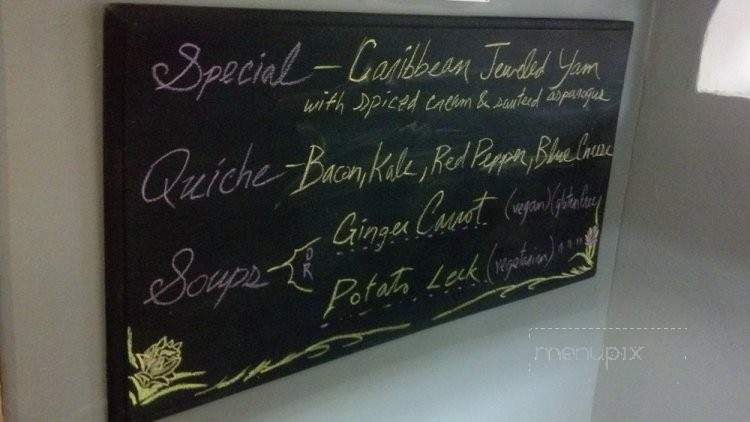 Special - Caribbean Jeweled Yam
with spiced cream & sauteed asparagus
Quiche - Bacon, Kale, Red Pepper, Blue Cheese
Soups OR Ginger Carrot (vegan) (gluten free)
Potato Leek (vegetarian) " " "
menupix